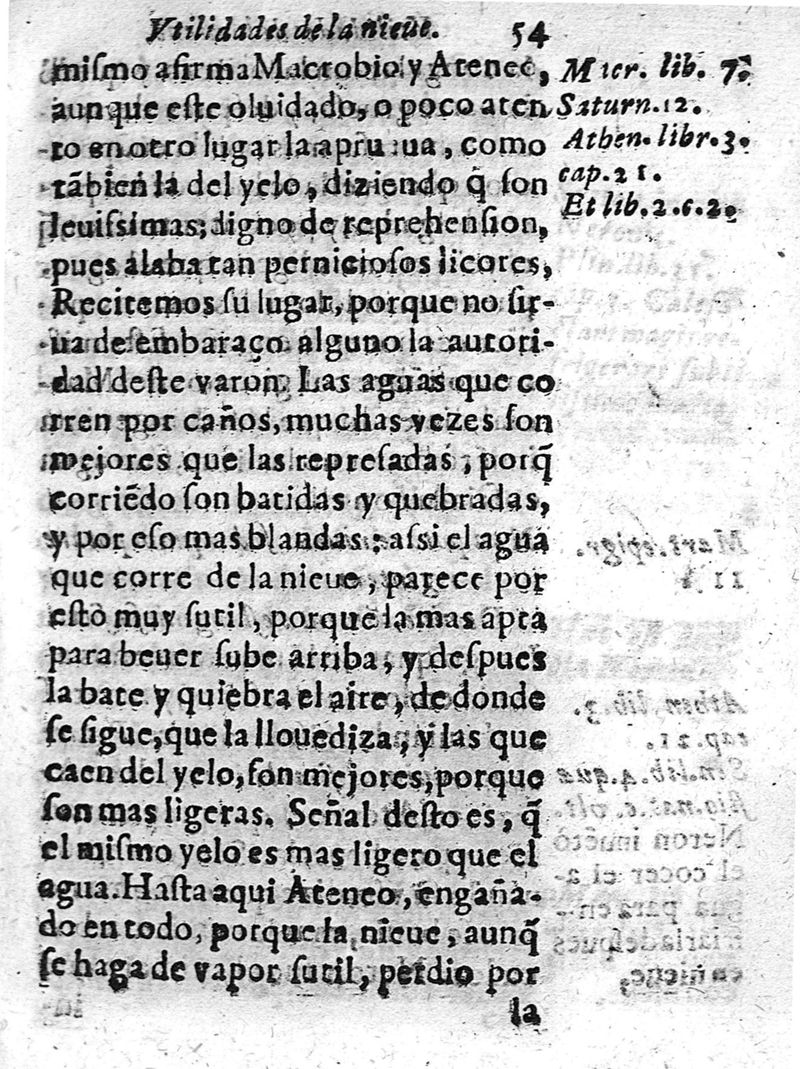 Vtilidades de la nieue. 54
mismo afirma Macrobio y Ateneo,
aunque este oluidado, o poco aten
to en otro lugar la aprueua, como
tãbien la del yelo, diziendo q̃ son
leuissimas; digno de reprehension,
pues alabaran perniciosos licores,
Recitemos su lugar, porque no sir-
ua de embaraço alguno la autori-
dad deste varon. Las aguas que co
rren por caños, muchas vezes son
mejores que las represadas, porq̃
corriẽdo son batidas y quebradas,
y por eso mas blandas: assi el agua
que corre de la nieue, parece por
esto muy sutil, porque la mas apta
para beuer sube arriba, y despues
la bate y quiebra el aire, de donde
se sigue, que la llouediza, y las que
caen del yelo, son mejores, porque
son mas ligeras. Señal desto es, q̃
el mismo yelo es mas ligero que el
agua. Hasta aqui Ateneo, engaña-
do en todo, porque la nieue, aunq̃
se haga de vapor sutil, perdio por
la
Macr. lib. 7.
Saturn. 12.
Athen. libr. 3.
cap. 21.
Et lib. 2. c. 2.